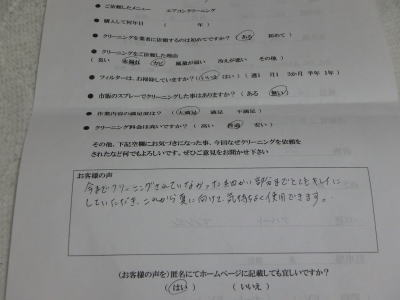 ● ご依頼したメニュー　エアコンクリーニング
● 購入して何年目　（　　　年）
● クリーニングを業者に依頼するのは初めてですか？（ある　初めて）
● クリーニングをご依頼した理由
（臭い　水漏れ　カビ　風量が弱い　冷えが悪い　その他　）
● フィルターは、お掃除していますか？（いいえ　はい）（週1　月1　3か月　半年　1年）
● 市販のスプレーでクリーニングした事はありますか？（ある　無い）
● 作業内容の満足度は？（大満足　満足　不満足）
● クリーニング料金は高いですか？（高い　普通　安い）
その他、下記空欄にお気づきになった事、今回なぜクリーニングを依頼を
されたなど何でもよろしいです。ぜひご意見をお聞かせ下さい
お客様の声
今までクリーニングされていなかった細かい部分までとてもキレイに
していただき、これから夏に向けて、気持ちよく使用できます。
（お客様の声を）匿名にてホームページに記載しても宜しいですか？
（はい）　（いいえ）